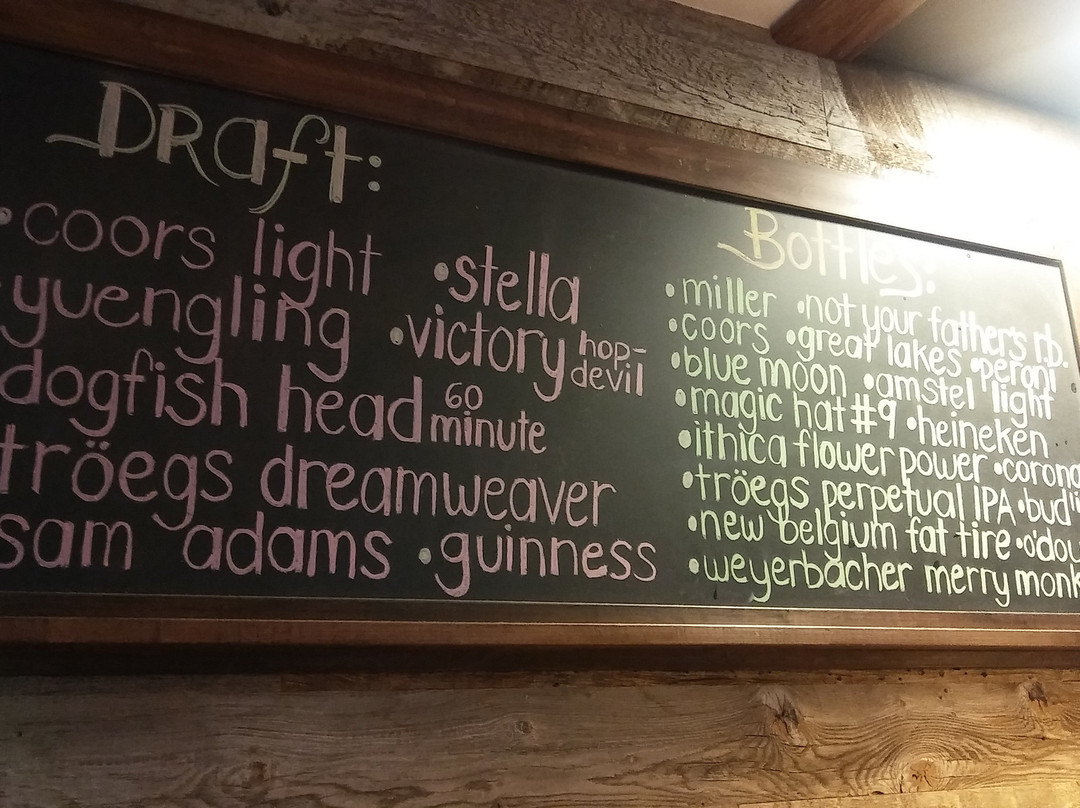 Draft:
• coors light • stella
yuengling • victory hop-devil
dogfish head 60 minute
tröegs dreamweaver
sam adams • guinness
Bottles:
• miller • not your father's rb.
• coors • great lakes • peroni
• blue moon • amstel light
• magic hat #9 • heineken
• ithica flower power • corona
• tröegs perpetual IPA • bud
• new belgium fat tire
• weyerbacher merry